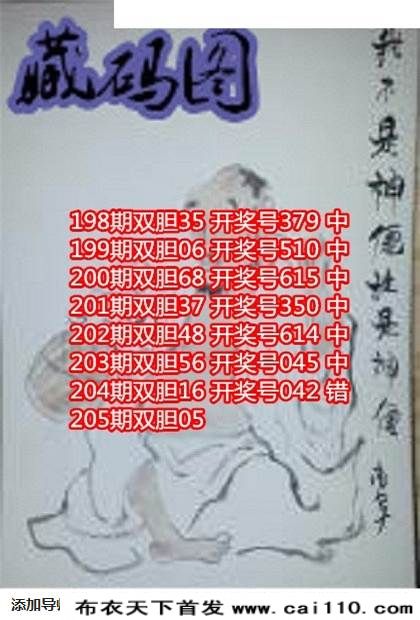 藏码图
我不是神仙比是神仙
198期双胆35 开奖号379 中
199期双胆06 开奖号510 中
200期双胆68 开奖号615 中
201期双胆37 开奖号350 中
202期双胆48 开奖号614 中
203期双胆56 开奖号045 中
204期双胆16 开奖号042 错
205期双胆05
布衣天下首发 www.cai110.com